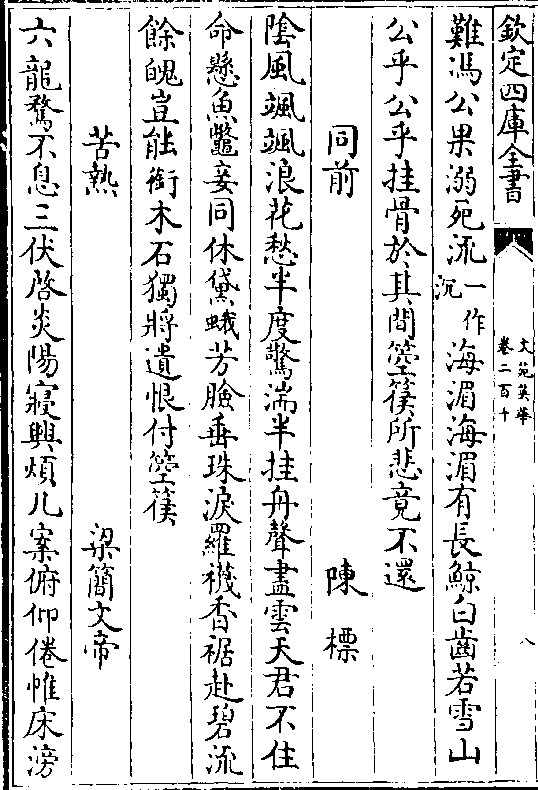 欽定四庫全書
文苑英華
卷二百十
八
難馮公果溺死流一作沉海湄海湄有長鯨白齒若雪山
公乎公乎挂骨於其間箜篌所悲竟不還
同前 陳標
陰風颯颯浪花愁半度驚湍半挂舟聲盡雲天君不住
命懸魚鼈妾同休黛蛾芳臉垂珠淚羅襪香裾赴碧流
餘魄豈能銜木石獨將遺恨付箜篌
苦熱 梁簡文帝
六龍騖不息三伏啓炎陽寢興煩几案俯仰倦帷床滂